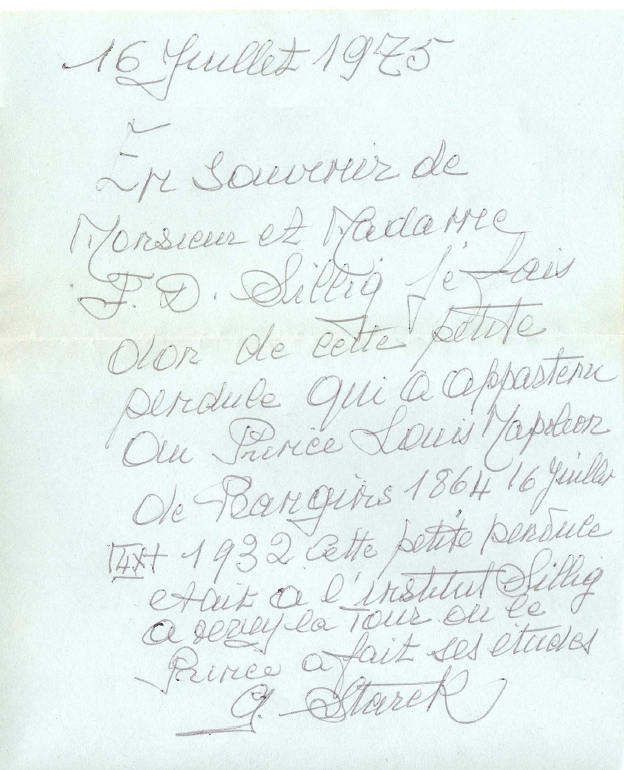 16 Juillet 1975
En souvenir de
Monsieur et Madame
F. D. Sillig je fais
don de cette petite
pendule qui a appartenu
au Prince Louis Napoleon
de Prangins 1864 16 Juillet
1932 cette petite pendule
etait a l'institut Sillig
a vevey la Tour ou le
Prince a fait ses études
G. Starck